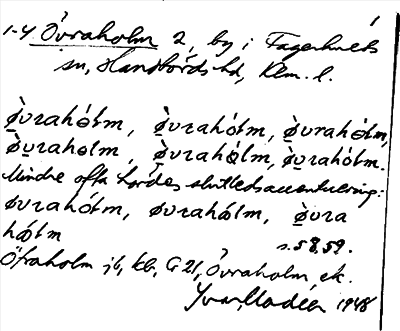 1-4 Övraholm 2, by i Fagerhults
sn, Handbörds hd, Klm. l.
ø̀vrahólm, ø̀vrahólm, ø̀vrahólm,
ø̀vraholm, ø̀vrahólm, ø̀vrahólm.
Mindre ofta hördes slutledsaccentuering:
øvrahólm, øvrahólm, ø̀vra
hólm s. 58, 59.
Öfraholm jb, kb, G 21, Övraholm ek.
Ivar Modéer 1948